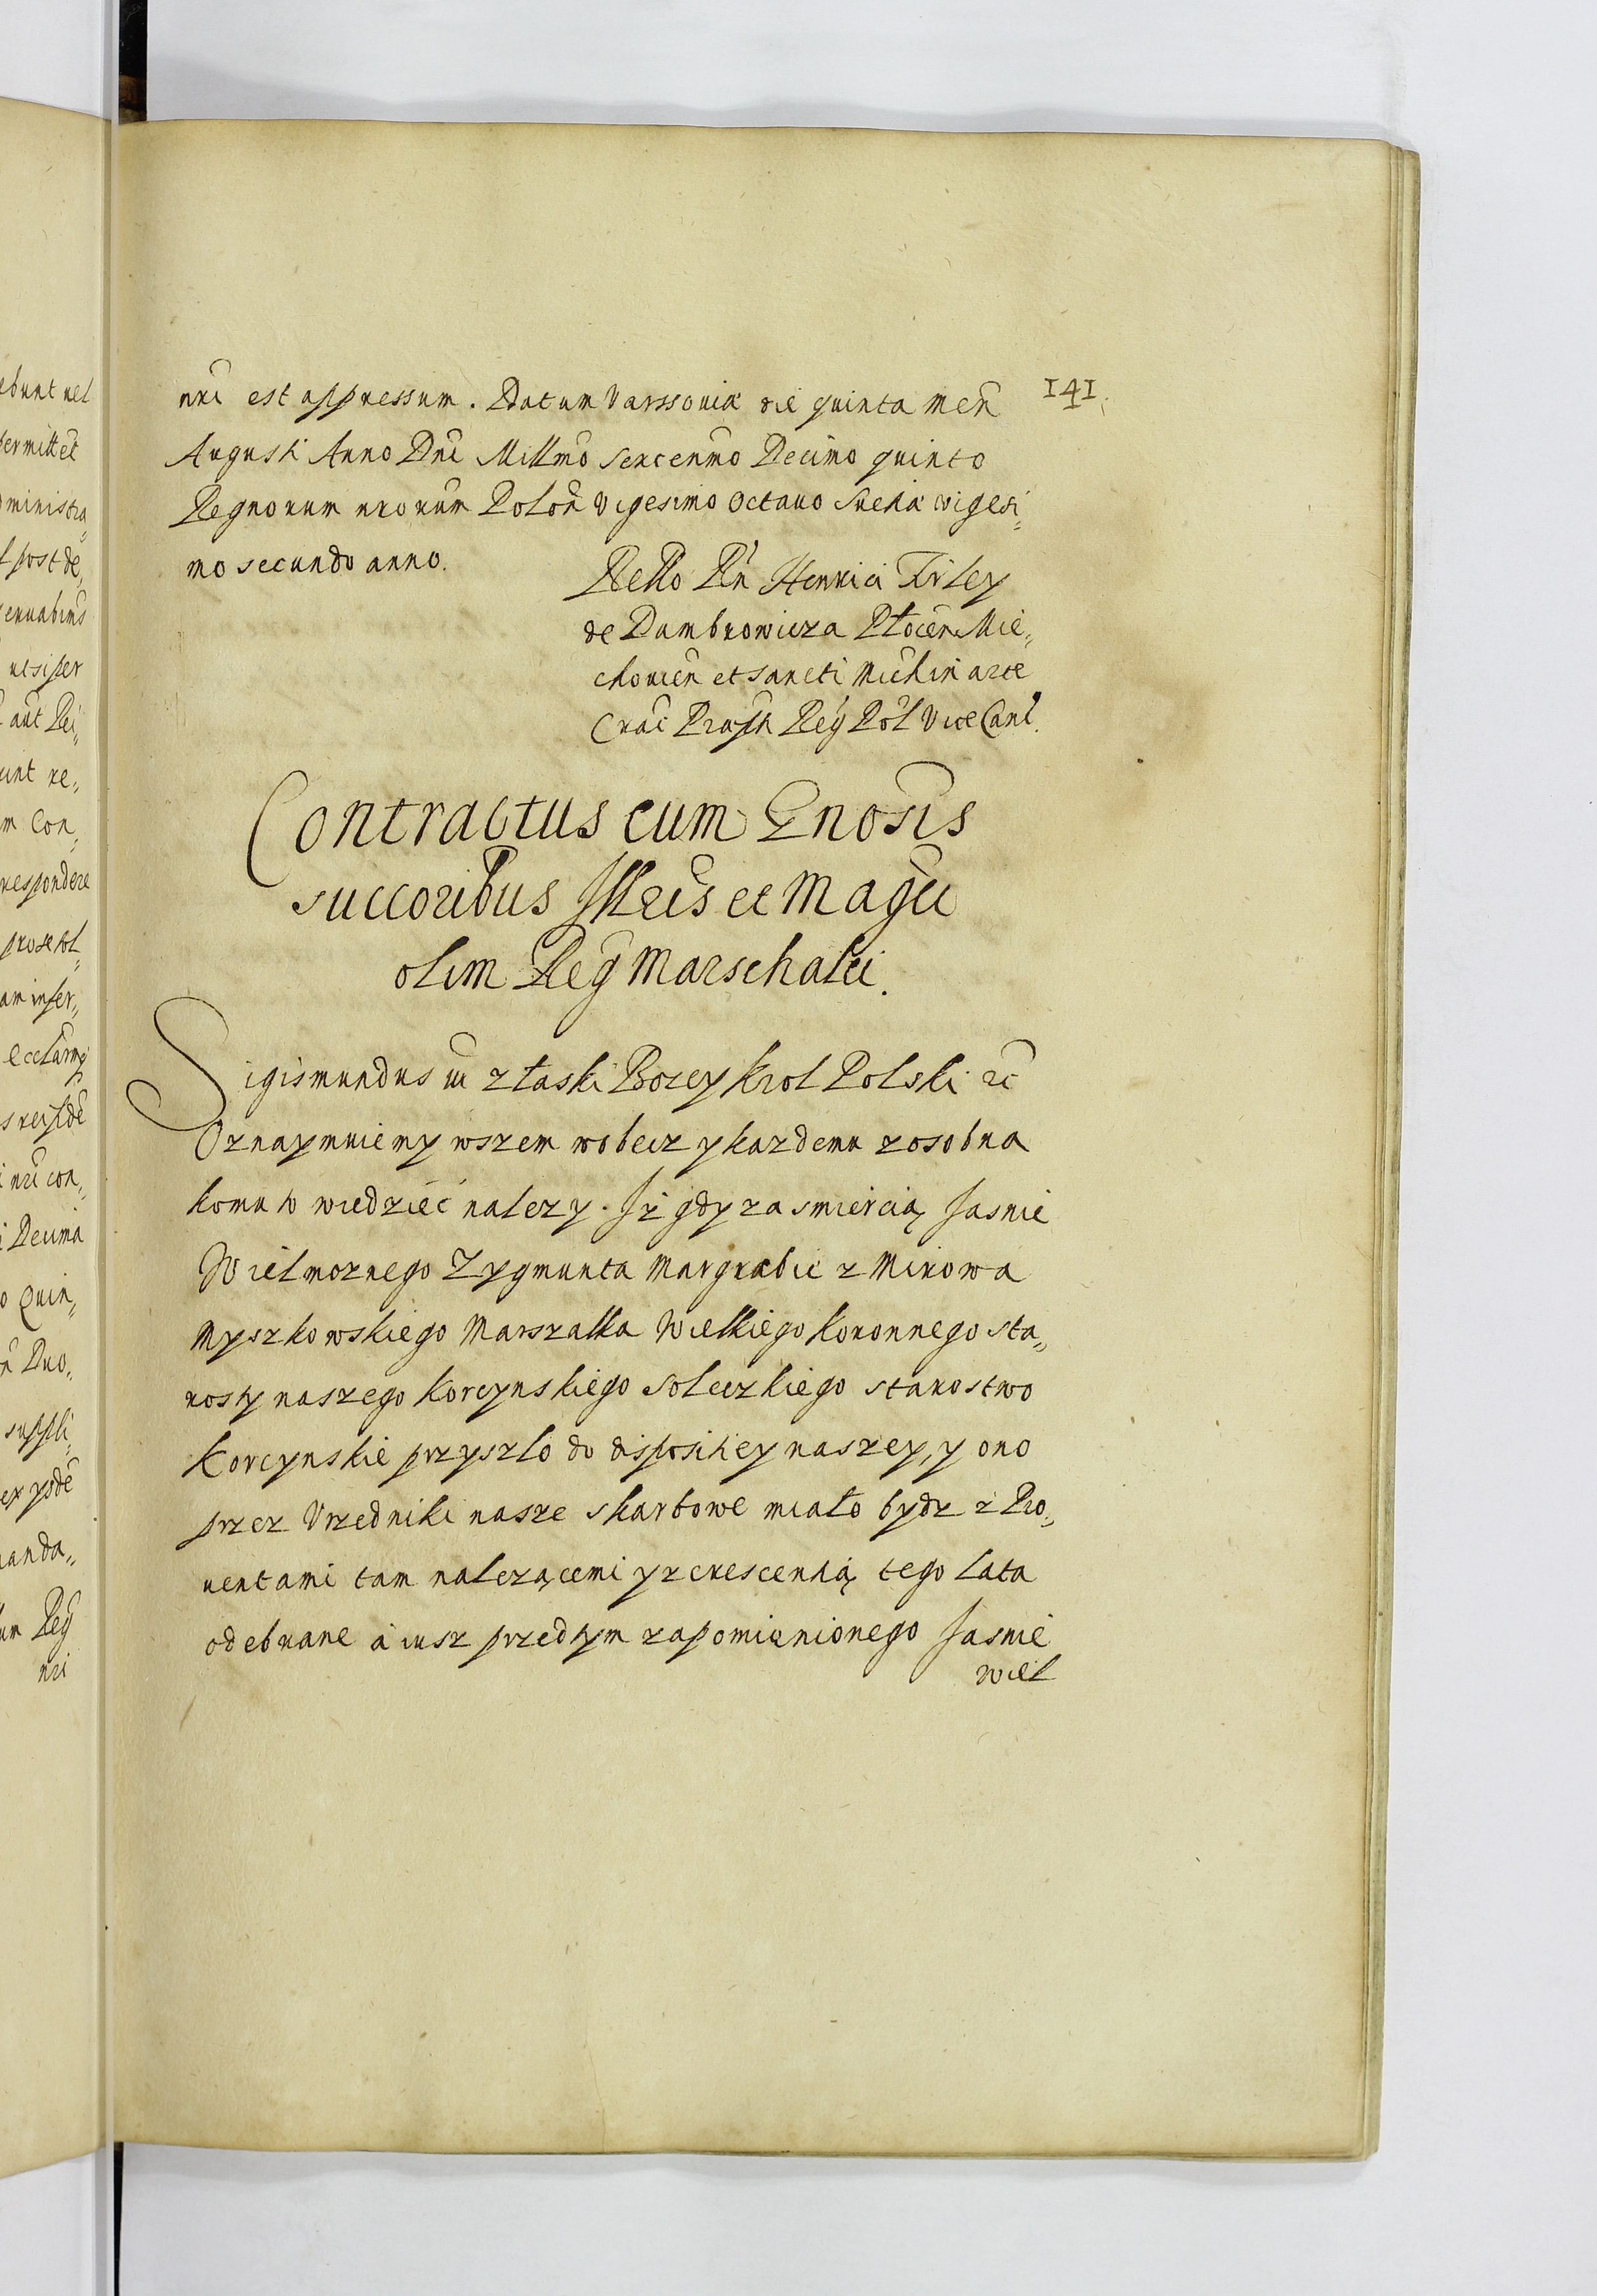 141.
nri est appressum. Datum Varssoviæ die quinta Men
Augusti Anno Dni Millmo sexcenmo Decimo quinto
Regnorum nrorum Polon Vigesimo Octauo Sueciæ vigesi„
mo secundo anno.
Rello Rn Henrici Firley
de Dambrowicza Płocen Mie„
chovien et sancti Michin arce
Crac Præpn Reg Pol Vice Canl.
Contractus cum Gnosis
succoribus Illris et Magci
olim Reg Marschalci.
Sigismundus iii z łaski Bozey Krol Polski &c
Oznaymuiemy wszem wobecz y kazdemu zosobna
komu to wiedzieć nalezy. Iż gdy za smiercią Jasnie
Wielmoznego Zygmunta Margrabie z Mirowa
Myszkowskiego Marszałka Wielkiego koronnego sta„
rosty naszego Korcynskiego soleczkiego starostwo
Korcynskie przyszło do dispositiey naszey, y ono
przez Vrzedniki nasze skarbowe miało bydz z Pro„
uentami tam nalezącemi y z crescentią tego lata
odebrane a iusz przedtym zapomienionego Jasnie
wiel
ebunt vel
permittet
ministra„
l post de„
eruabims
ut si per
aut Rei„
unt re„
m Con„
respondere
prosevol„
am infer„
Ecclarmq
i nri con„
i Decima
o Quin„
Duo„
suppli„
manda„
um Reg
nri